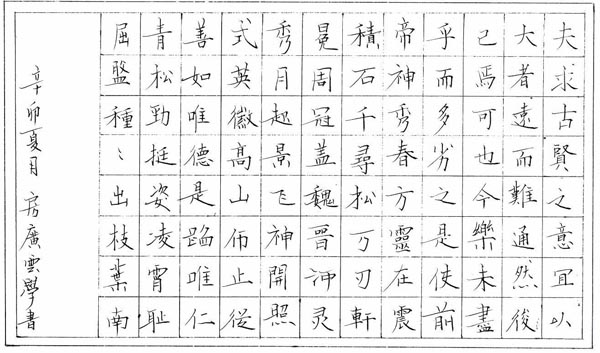 夫求古賢之意宜以
大者遠而難通然後
已焉可也今樂未盡
乎而多劣之是使前
帝神秀春方靈在震
積石千尋松万刃軒
冕周冠蓋魏晉沖灵
秀月起景飞神開照
式英徽高山仰止從
善如唯德是蹈唯仁
青松勁挺姿凌霄恥
屈盤種〻出枝葉南
辛卯夏月 房廣雲學書